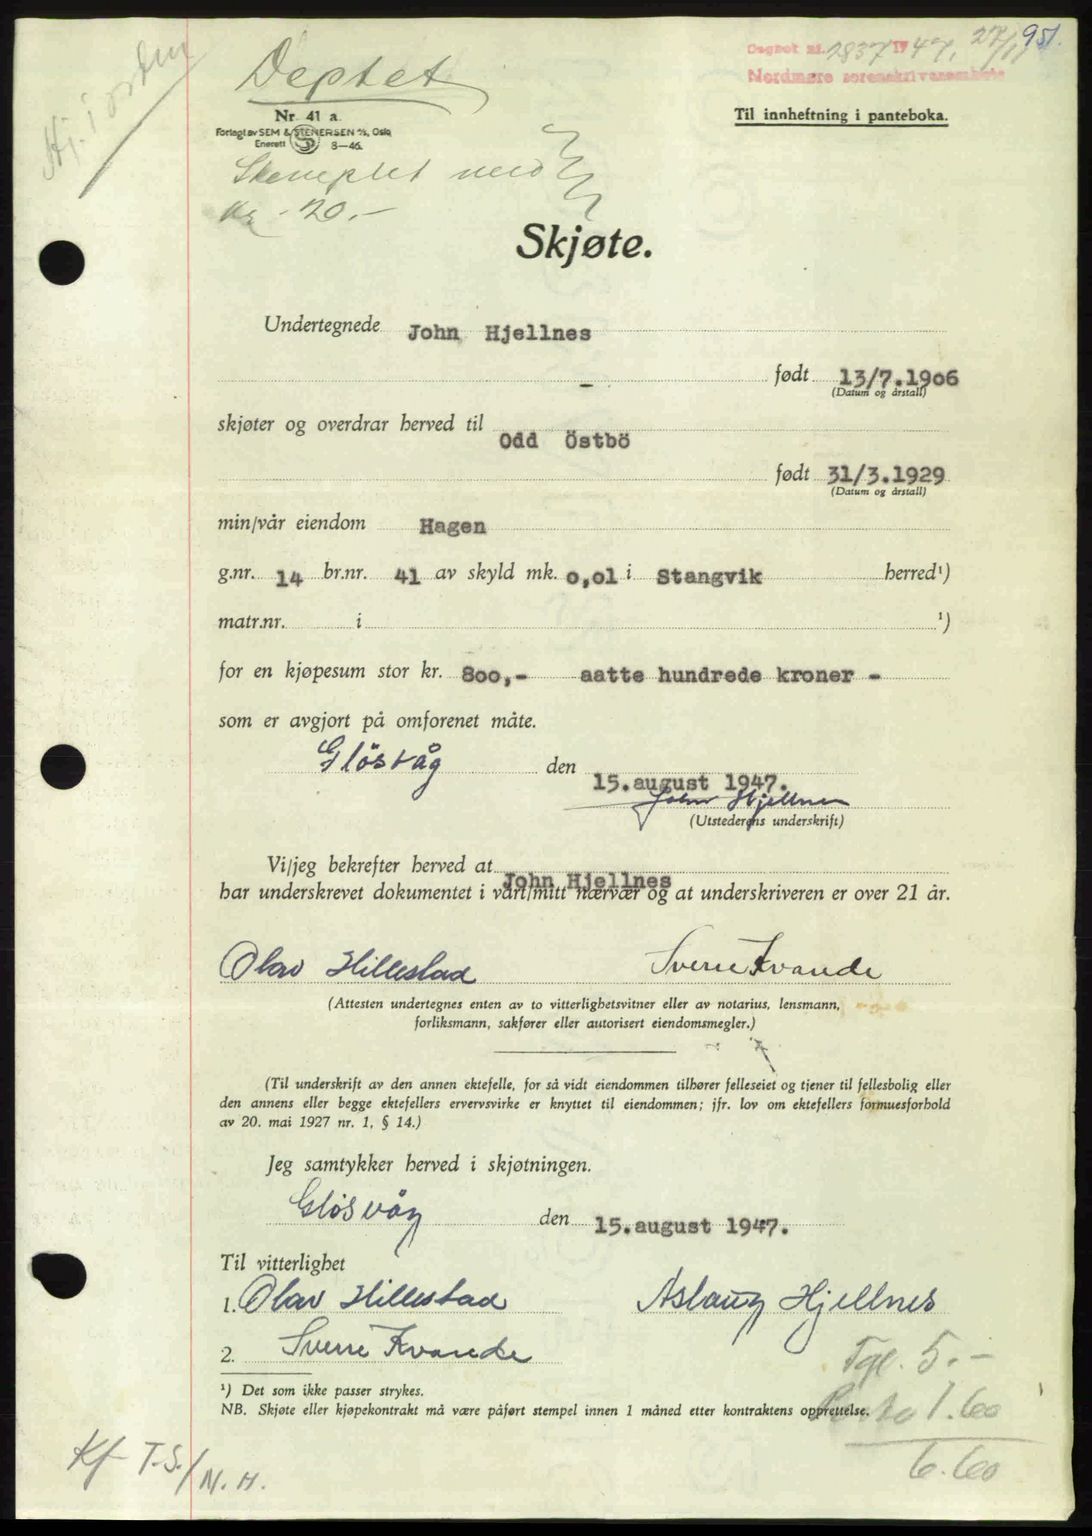 951.
Dagbok nr. 2837 1947, 27/11
Nordmøre sorenskriverembete
Hj. i orden
Deptet
Nr. 41 a.
Forlagt av SEM & STENERSEN A/S, Oslo
Enerett 8—46.
Til innheftning i panteboka.
Stemplet med
Kr. 20.-
Skjøte.
Undertegnede John Hjellnes
- født 13/7.19o6
(Datum og årstall)
skjøter og overdrar herved til Odd Östbö
født 31/3.1929
(Datum og årstall)
min/vår eiendom Hagen
g.nr. 14 br.nr. 41 av skyld mk. o,o1 i Stangvik herred¹)
matr.nr. i ¹)
for en kjøpesum stor kr. 8oo,- aatte hundrede kroner -
som er avgjort på omforenet måte.
Glösvåg den 15.august 1947.
John Hjellnes
(Utstederens underskrift)
Vi/jeg bekrefter herved at John Hjellnes
har underskrevet dokumentet i vårt/mitt nærvær og at underskriveren er over 21 år.
Olav Hillestad Sverre Kvande
(Attesten undertegnes enten av to vitterlighetsvitner eller av notarius, lensmann,
forliksmann, sakfører eller autorisert eiendomsmegler.)
(Til underskrift av den annen ektefelle, for så vidt eiendommen tilhører felleseiet og tjener til fellesbolig eller
den annens eller begge ektefellers ervervsvirke er knyttet til eiendommen; jfr. lov om ektefellers formuesforhold
av 20. mai 1927 nr. 1, § 14.)
Jeg samtykker herved i skjøtningen.
Glösvåg den 15.august 1947.
Til vitterlighet
1. Olav Hillestad Aslaug Hjellnes
2. Sverre Kvande
Tgl. 5.-
¹) Det som ikke passer strykes.
NB. Skjøte eller kjøpekontrakt må være påført stempel innen 1 måned etter kontraktens opprettelse.
Porto 1.60
6.60
Kf T.S./N.H.